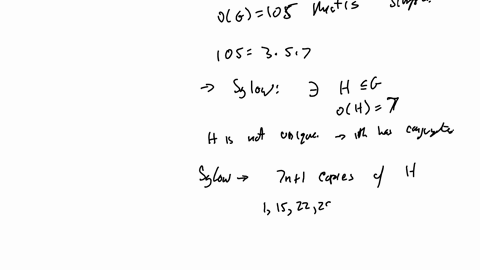 O(G)=105 that is
105 = 3.5.7
→ Sylow: ∃ H ⊆ G
O(H) = 7
H is not unique → it has conjugates
Sylow → 7n+1 copies of H
1, 15, 22, 2